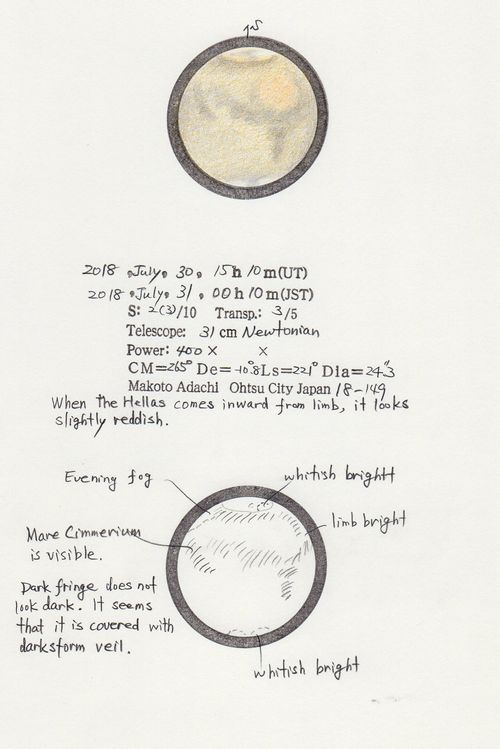 S
2018 . July . 30 . 15h 10m(UT)
2018 . July . 31 . 00h 10m(JST)
S: 2(3)/10 Transp.: 3/5
Telescope: 31 cm Newtonian
Power: 400 × ×
CM=265° De=-10.°8 Ls=221° Dia=24."3
Makoto Adachi Ohtsu City Japan 18-149
When the Hellas comes inward from limb, it looks
slightly reddish.
Evening fog
whitish brightt
limb bright
Mare Cimmerium
is visible.
Dark fringe does not
look dark. It seems
that it is covered with
darksform veil.
whitish bright